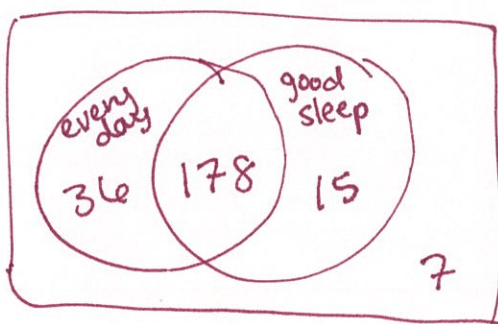 every
day
good
sleep
36 178 15
7